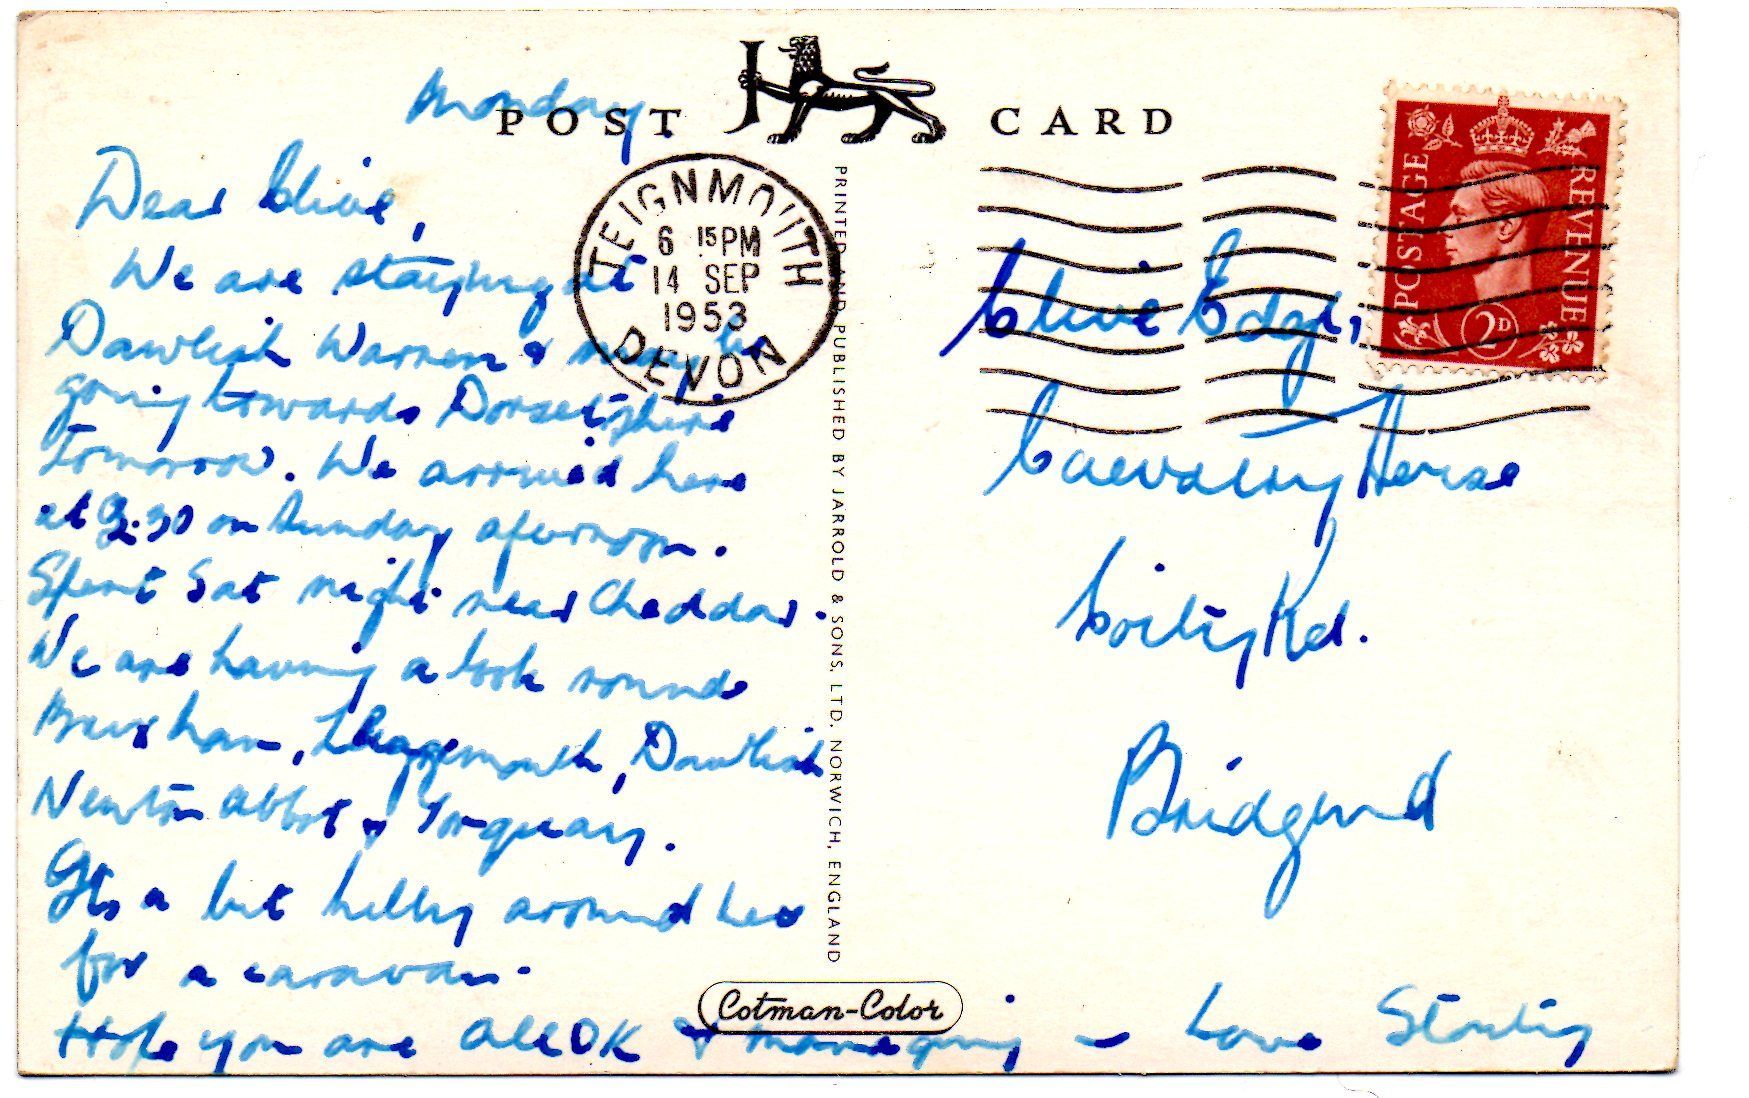 POST CARD
Monday
Dear Clive,
We are staying at
Dawlish Warren & may be
going towards Dorsetshire
Tomorrow. We arrived here
at 3.30 on Sunday afternoon.
Spent Sat night near Cheddar.
We are having a look round
Brixham, Dawlish
Newton Abbot & Torquay.
Its a bit hilly around here
for a caravan.
Hope you are all OK & managing - Love
TEIGNMOUTH
6 15 PM
14 SEP
1953
DEVON
PRINTED AND PUBLISHED BY JARROLD & SONS, LTD. NORWICH, ENGLAND
Cotman-Color
POSTAGE
REVENUE
2D
Clive
Coity Rd.
Bridgend